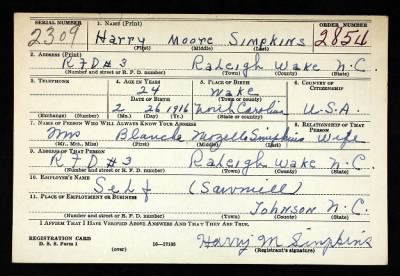 SERIAL NUMBER 1. NAME (Print) ORDER NUMBER
2309 Harry Moore Simpkins 2854
(First) (Middle) (Last)
2. ADDRESS (Print)
RFD #3 Raleigh Wake N.C.
(Number and street or R. F. D. number) (Town) (County) (State)
3. TELEPHONE 4. AGE IN YEARS 5. PLACE OF BIRTH 6. COUNTRY OF CITIZENSHIP
24 Wake
DATE OF BIRTH (Town or county)
2 26 1916 North Carolina U.S.A.
(Exchange) (Number) (Mo.) (Day) (Yr.) (State or country)
7. NAME OF PERSON WHO WILL ALWAYS KNOW YOUR ADDRESS 8. RELATIONSHIP OF THAT PERSON
Mrs Blanche Mozelle Simpkins Wife
(Mr., Mrs., Miss) (First) (Middle) (Last)
9. ADDRESS OF THAT PERSON
RFD #3 Raleigh Wake N.C.
(Number and street or R. F. D. number) (Town) (County) (State)
10. EMPLOYER'S NAME
Self (Sawmill)
11. PLACE OF EMPLOYMENT OR BUSINESS
Johnson N.C.
(Number and street or R. F. D. number) (Town) (County) (State)
I AFFIRM THAT I HAVE VERIFIED ABOVE ANSWERS AND THAT THEY ARE TRUE.
REGISTRATION CARD
D. S. S. Form 1 (over) 16—17105 Harry M Simpkins
(Registrant's signature)